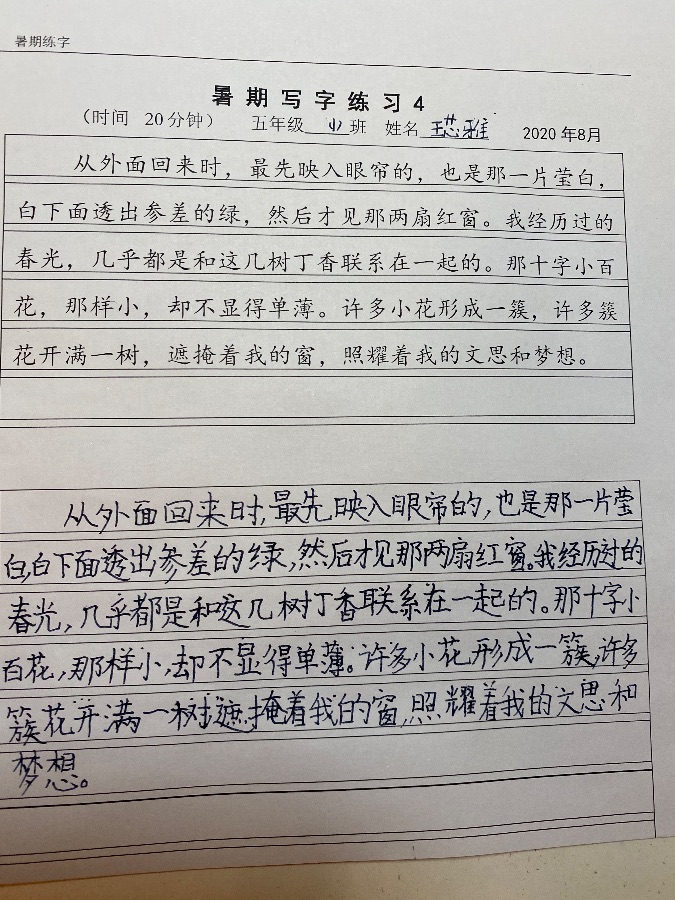 暑期练字
暑期写字练习4
（时间 20分钟） 五年级 班 姓名 芯雅 2020年8月
从外面回来时，最先映入眼帘的，也是那一片莹白，
白下面透出参差的绿，然后才见那两扇红窗。我经历过的
春光，几乎都是和这几树丁香联系在一起的。那十字小百
花，那样小，却不显得单薄。许多小花形成一簇，许多簇
花开满一树，遮掩着我的窗，照耀着我的文思和梦想。
从外面回来时，最先映入眼帘的，也是那一片莹
白，白下面透出参差的绿，然后才见那两扇红窗。我经历过的
春光，几乎都是和这几树丁香联系在一起的。那十字小
百花，那样小，却不显得单薄。许多小花形成一簇，许多
簇花开满一树，遮掩着我的窗，照耀着我的文思和
梦想。